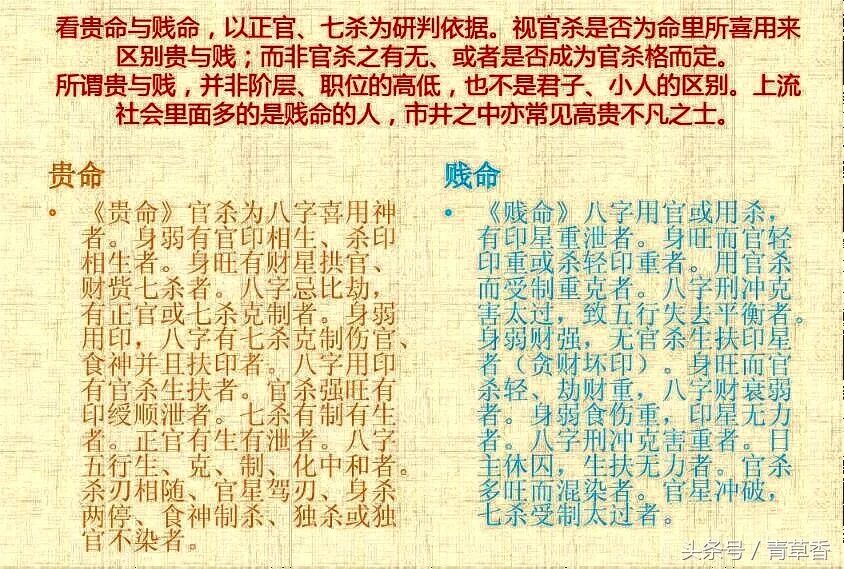 看贵命与贱命，以正官、七杀为研判依据。视官杀是否为命里所喜用来
区别贵与贱；而非官杀之有无、或者是否成为官杀格而定。
所谓贵与贱，并非阶层、职位的高低，也不是君子、小人的区别。上流
社会里面多的是贱命的人，市井之中亦常见高贵不凡之士。
贵命
• 《贵命》官杀为八字喜用神
者。身弱有官印相生、杀印
相生者。身旺有财星拱官、
财赀七杀者。八字忌比劫，
有正官或七杀克制者。身弱
用印，八字有七杀克制伤官、
食神并且扶印者。八字用印
有官杀生扶者。官杀强旺有
印绶顺泄者。七杀有制有生
者。正官有生有泄者。八字
五行生、克、制、化中和者。
杀刃相随、官星驾刃、身杀
两停、食神制杀、独杀或独
官不染者。
贱命
• 《贱命》八字用官或用杀，
有印星重泄者。身旺而官轻
印重或杀轻印重者。用官杀
而受制重克者。八字刑冲克
害太过，致五行失去平衡者。
身弱财强，无官杀生扶印星
者（贪财坏印）。身旺而官
杀轻、劫财重，八字财衰弱
者。身弱食伤重，印星无力
者。八字刑冲克害重者。日
主休囚，生扶无力者。官杀
多旺而混染者。官星冲破，
七杀受制太过者。
头条号 / 青草香